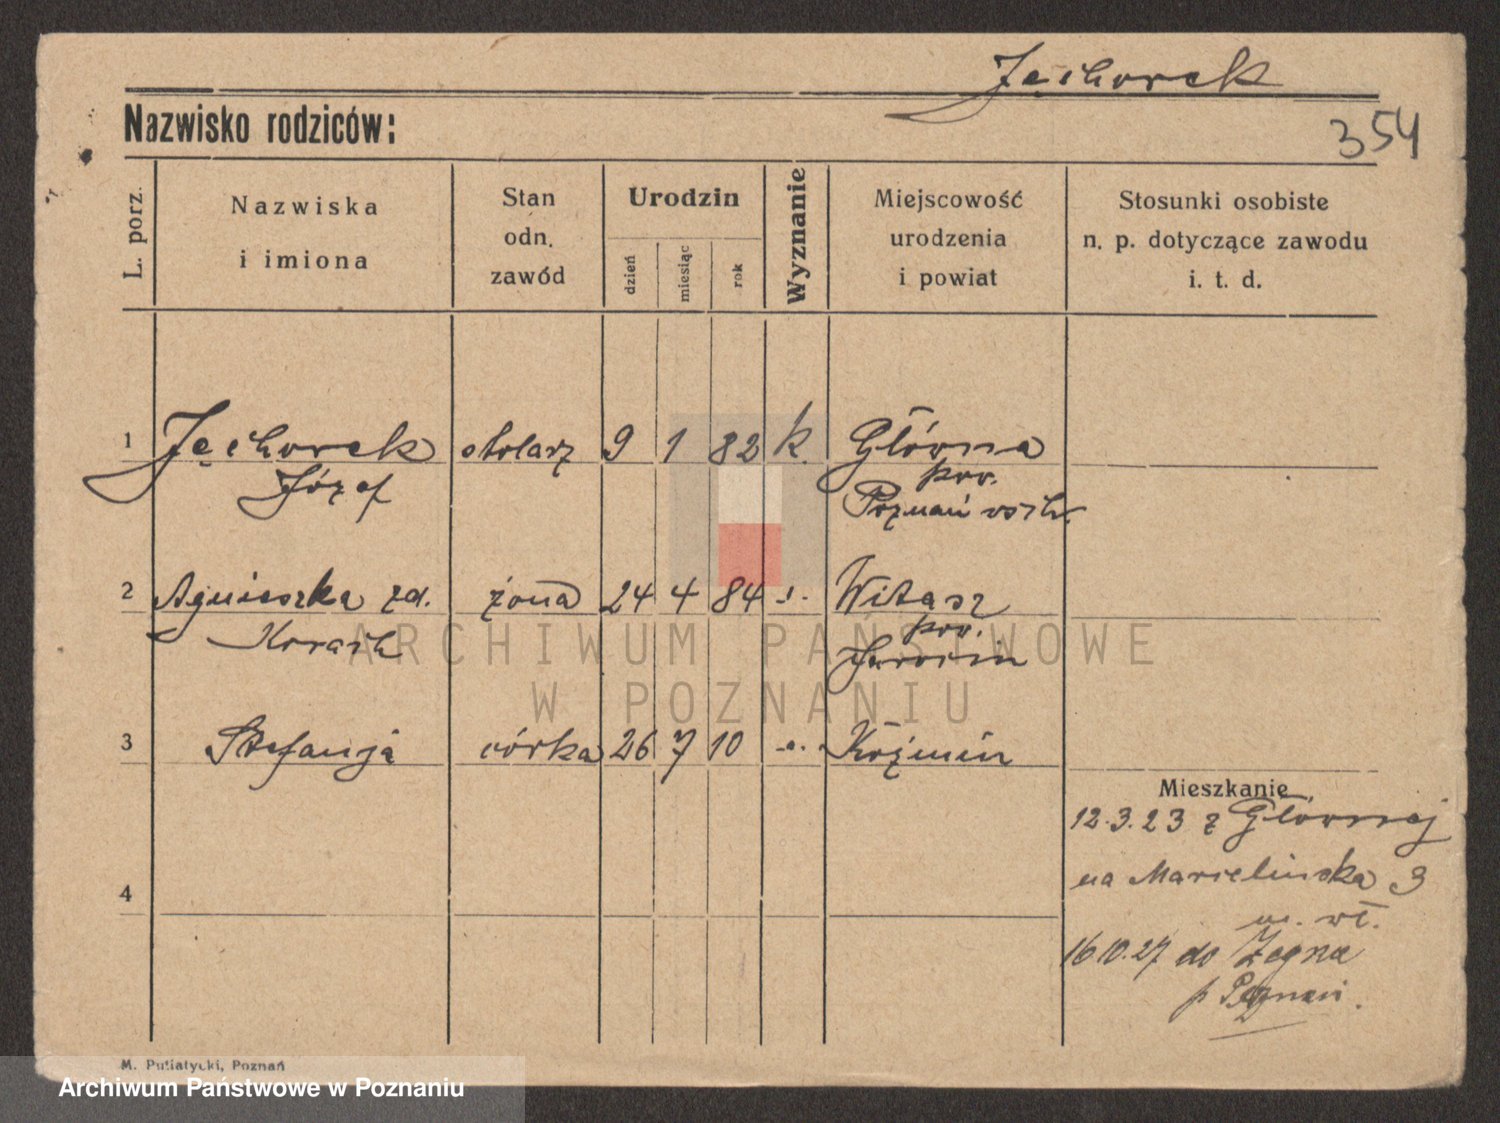 Jęchorek
Nazwisko rodziców:
354
L. porz.
Nazwiska
i imiona
Stan
odn.
zawód
Urodzin
dzień
miesiąc
rok
Wyznanie
Miejscowość
urodzenia
i powiat
Stosunki osobiste
n. p. dotyczące zawodu
i. t. d.
1 Jęchorek stolarz 9 1 82 k. Główna
Józef pow.
Poznań wsch.
2 Agnieszka zd. żona 24 4 84 Witasz
pow.
Jarocin
3 Stefanja córka 26 7 10 Koźmin
Mieszkanie
12.3.23 z Głównej
na Marcelińska 3
4
16.10.27 do Żegna
p Poznań.
M. Putiatycki, Poznań
ARCHIWUM PAŃSTWOWE
W POZNANIU
Archiwum Państwowe w Poznaniu